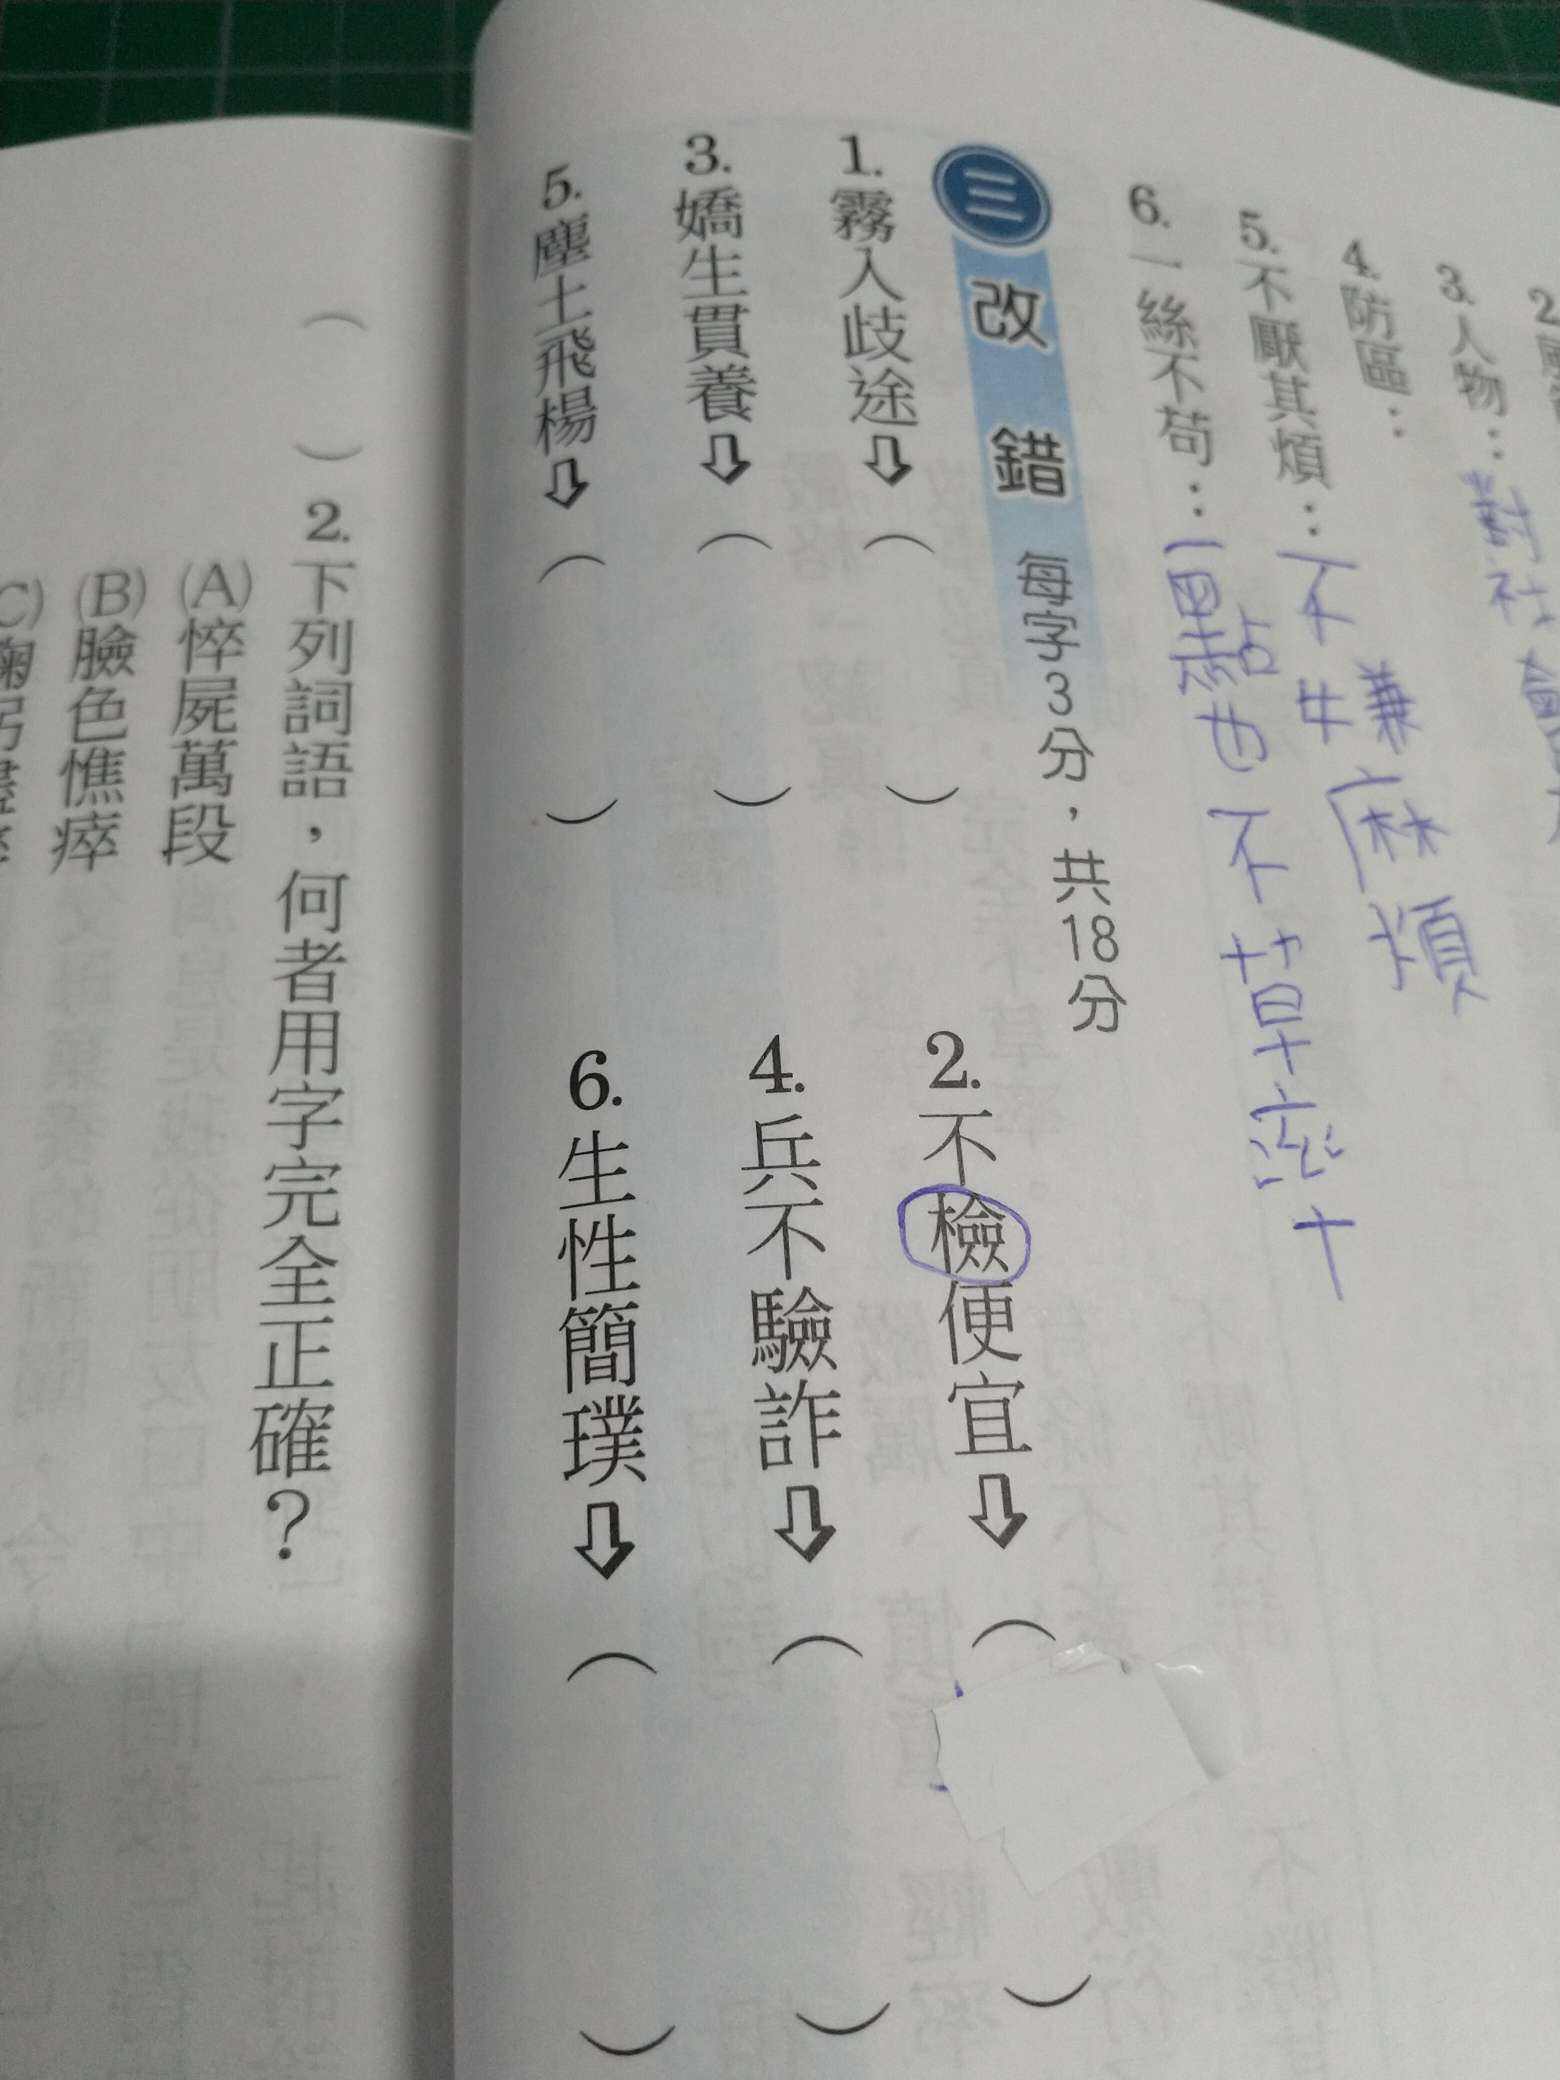 3.人物：對社
4.防區：
5.不厭其煩：不嫌麻煩
6.一絲不苟：一點也不草率
三 改錯 每字3分，共18分
1.霧入歧途⇩（ ） 2.不檢便宜⇩（ ）
3.嬌生貫養⇩（ ） 4.兵不驗詐⇩（ ）
5.塵土飛楊⇩（ ） 6.生性簡璞⇩（ ）
（ ）2.下列詞語，何者用字完全正確？
(A)悴屍萬段
(B)臉色憔瘁